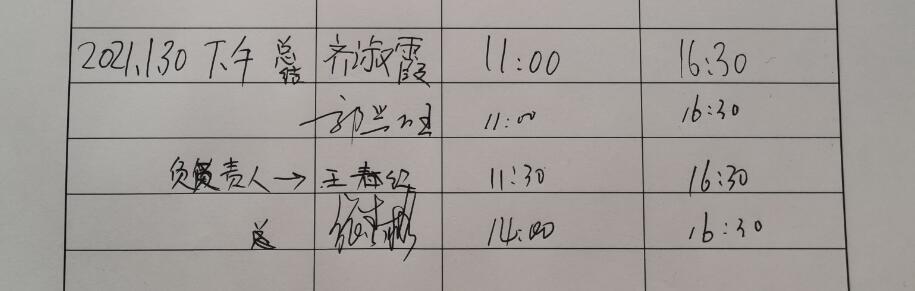 2021.1.30 下午 总结 齐淑霞 11:00 16:30
郭兰 11:00 16:30
负责人→ 王春红 11:30 16:30
14:00 16:30